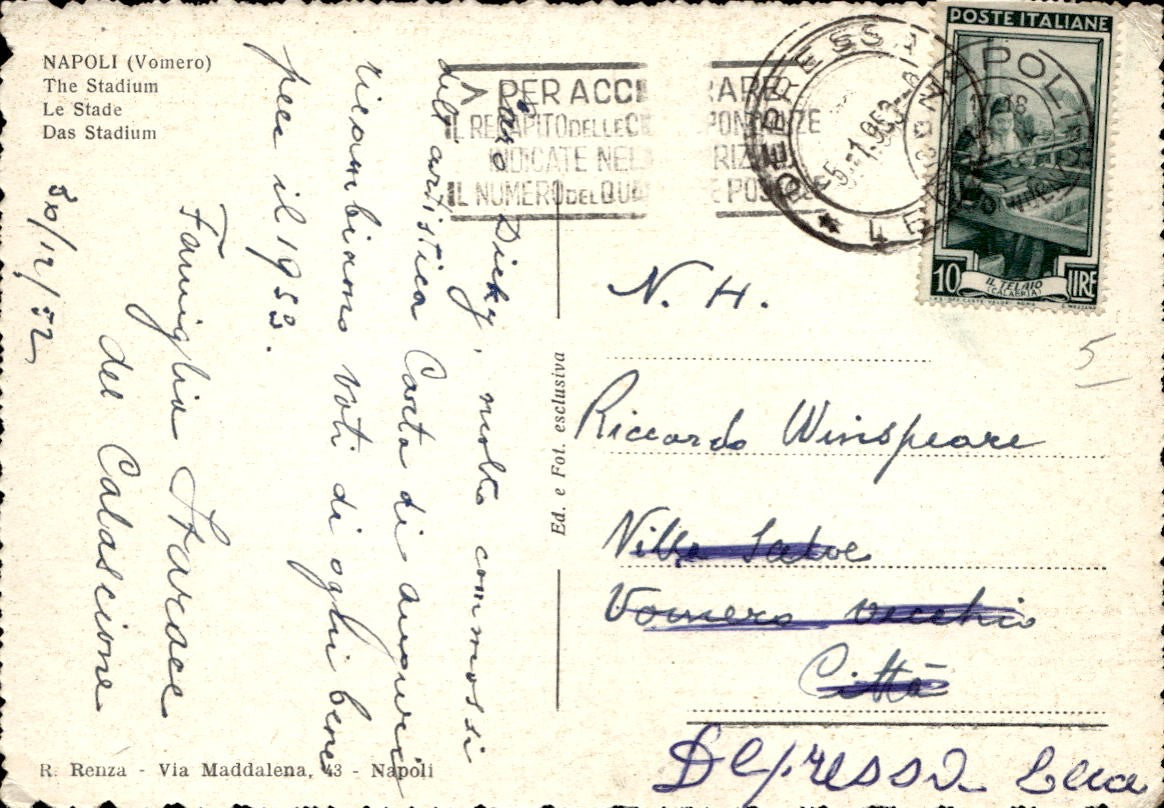 NAPOLI (Vomero)
The Stadium
Le Stade
Das Stadium
Caro Dicky, molto commossi
dell'artistica Carta di auguri
ricambiano voti di ogni bene
per il 1953.
Famiglia
del Calascione
30/12/52
R. Renza - Via Maddalena, 43 - Napoli
Ed. e Fot. esclusiva
PER ACC RARE
IL RECAPITO DELLE C SPONDENZE
INDICATE NEL RIZZI
IL NUMERO DEL QU E POSTALE
DEPRESSA
LECCE
5-1.953
NAPOLI
17-18
POSTE ITALIANE
10 LIRE
IL TELAIO
(CALABRIA)
N. H.
Riccardo Winspeare
Villa Salve
Vomero Vecchio
Città
Depressa Lecce
5